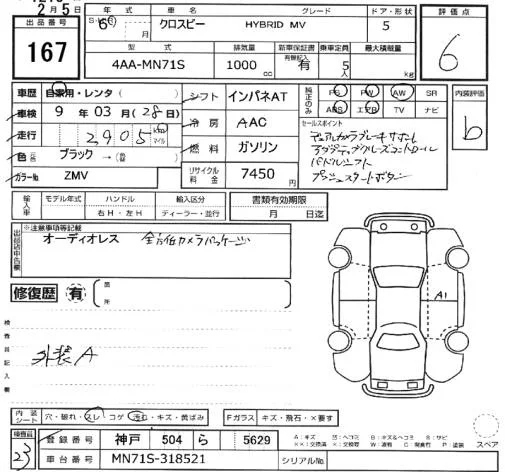 2月5日
出品番号
167
年式 車名 グレード ドア・形状 評価点
6 月 クロスビー HYBRID MV 5
6
型式 排気量 新車保証書 乗車定員 最大積載量
有無記入
4AA-MN71S 1000 cc 有 5 人 kg
車歴 自家用・レンタ ( )
車検 9年 03月 (28日)
走行 2905 km マイル
色 ブラック →( )
カラーNo ZMV
シフト インパネAT
冷房 AAC
燃料 ガソリン
リサイクル料金 7450円
純正のみ PS PW AW SR
ABS エアB TV ナビ
セールスポイント
デュアルカメラブレーキサポート
アダプティブクルーズコントロール
パドルシフト
プッシュスタートボタン
内装評価
b
輸入車 モデル年式 ハンドル 輸入区分
右H・左H ディーラー・並行
書類有効期限
月 日迄
出品店申告欄
※注意事項等記載
オーディオレス 全方位カメラパッケージ
修復歴 有 箇所
検査員記入欄
外装A
A1
内装シート 穴・破れ・スレ・コゲ・汚れ・キズ・黄ばみ
Fガラス キズ・飛石・×要す
検査員
23
登録番号 神戸 504 ら 5629
車台番号 MN71S-318521
シリアルNo.
A:キズ U:ヘコミ B:キズ&ヘコミ S:サビ
スペア